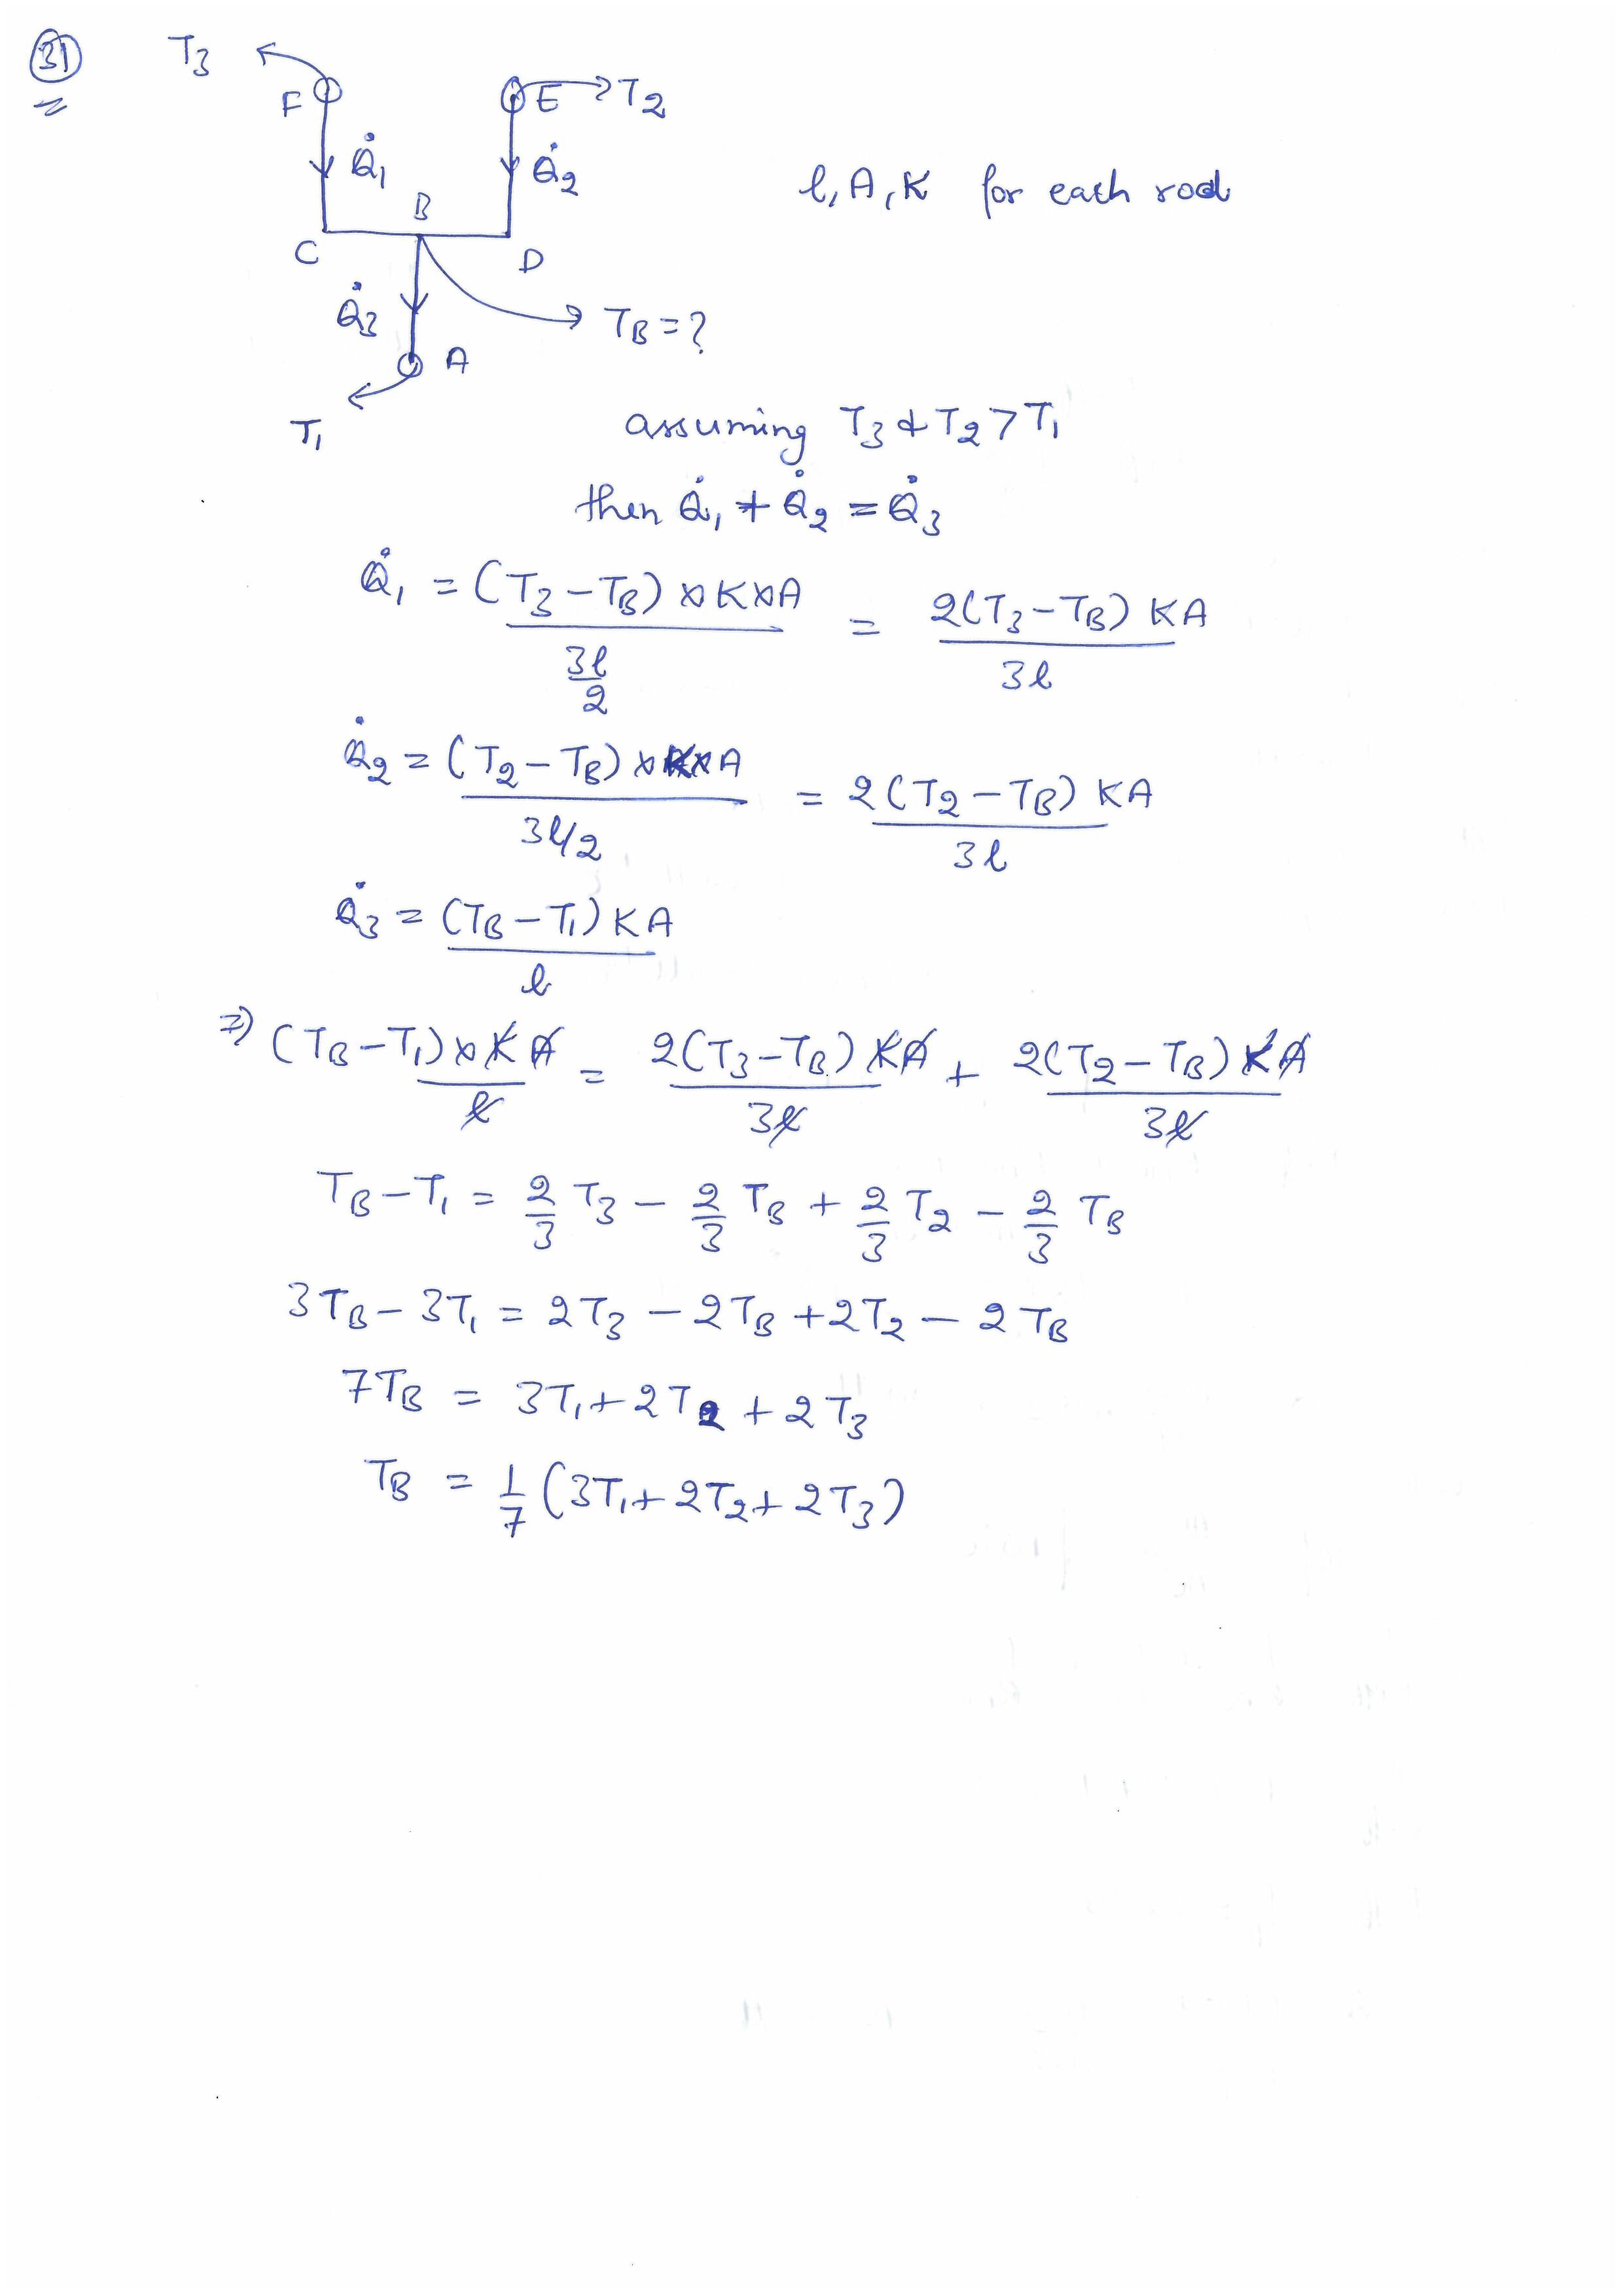 31
T3
F
E
T2
Q̇1
Q̇2
l, A, K for each rod
B
C
D
Q̇3
TB = ?
A
T1
assuming T3 & T2 > T1
then Q̇1 + Q̇2 = Q̇3
Q̇1 = (T3 - TB) × K × A / (3l/2) = 2(T3 - TB) KA / 3l
Q̇2 = (T2 - TB) × K × A / (3l/2) = 2(T2 - TB) KA / 3l
Q̇3 = (TB - T1) KA / l
⇒ (TB - T1) × KA / l = 2(T3 - TB) KA / 3l + 2(T2 - TB) KA / 3l
TB - T1 = 2/3 T3 - 2/3 TB + 2/3 T2 - 2/3 TB
3TB - 3T1 = 2T3 - 2TB + 2T2 - 2TB
7TB = 3T1 + 2T2 + 2T3
TB = 1/7 (3T1 + 2T2 + 2T3)